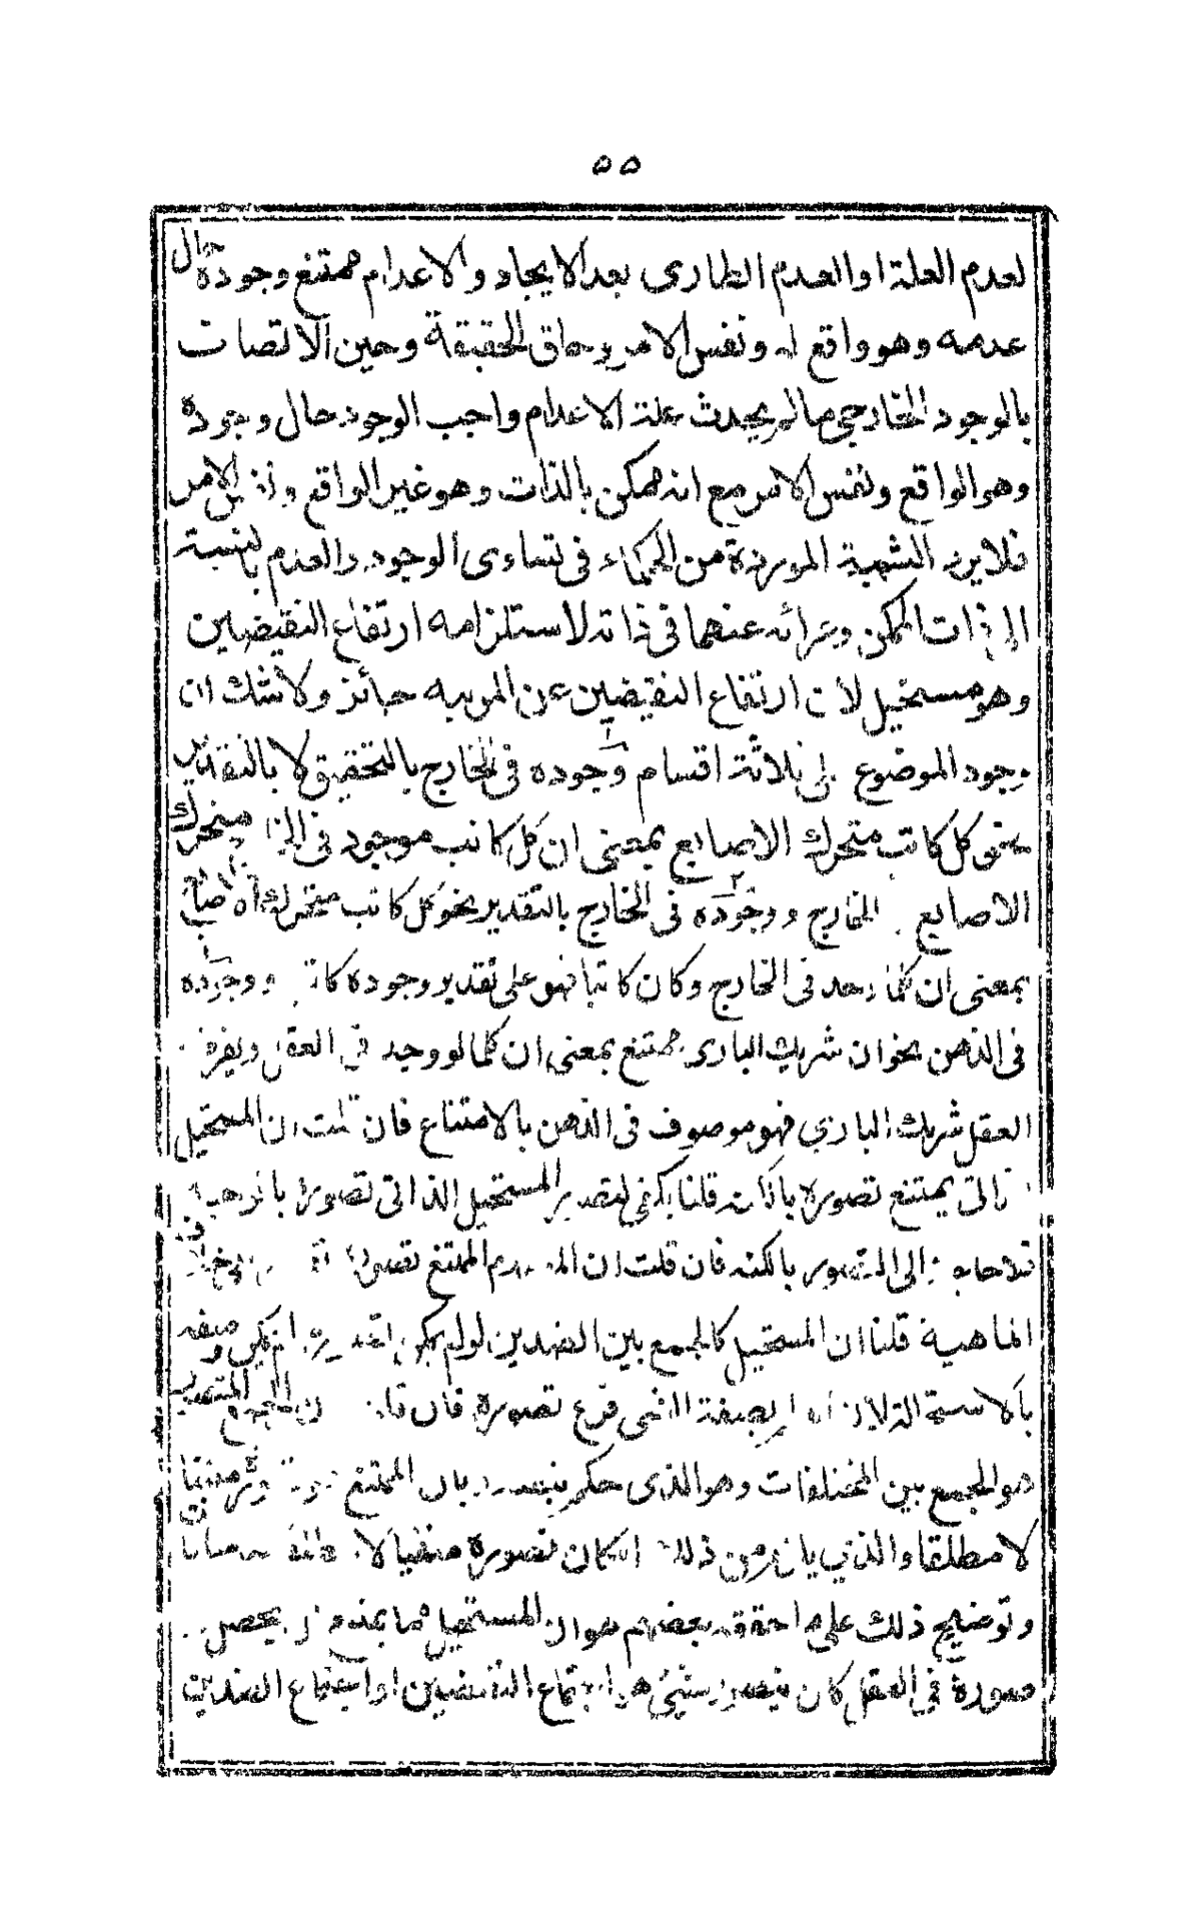 ٥٥
لعدم العلة او العدم الطارى بعد الايجاد والاعدام ممتنع وجوده حال
عدمه وهو واقع له ونفس الامر وحاق الحقيقة وحين الاتصاف
بالوجود الخارجى مالم يحدث علة الاعدام واجب الوجود حال وجوده
وهو الواقع ونفس الامر مع انه ممكن بالذات وهو غير الواقع ونفس الامر
فلا يرد الشبهة الموردة من الحكماء فى تساوى الوجود والعدم بالنسبة
الى ذات الممكن وعرائه عنهما فى ذاته لاستلزامه ارتفاع النقيضين
وهو مستحيل لان ارتفاع النقيضين عن المرتبه جائز ولاشك ان
وجود الموضوع على ثلاثة اقسام وجوده فى الخارج بالتحقيق لا بالتقدير
نحو كل كاتب متحرك الاصابع بمعنى ان كل كاتب موجود فى متحرك
الاصابع الخارج ووجوده فى الخارج بالتقدير نحو كل كاتب متحرك الاصابع
بمعنى ان كلما وجد فى الخارج وكان كاتبا فهو على تقدير وجوده ووجوده
فى الذهن نحو ان شريك البارى ممتنع بمعنى ان كلما لو وجد فى العقل ويفرض
العقل شريك البارى فهو موصوف فى الذهن بالامتناع فان قلت ان المستحيل
الذاتى يمتنع تصوره بالكنه قلنا يكفى لتصوير المستحيل الذاتى تصوره بالوجه
فلا حاجة الى التصوير بالكنه فان قلت ان الممتنع
الماهية قلنا ان المستحيل كالجمع بين الضدين لو لم يكن لم يكن وصفه
بالاستحالة لان الصفة التى فرع تصوره فان المتصور
هو الجمع بين المختلفات وهو الذى حكم بان الممتنع
لا مطلقا والذى يلزم من ذلك امكان تصوره منفيا لا
وتوضيح ذلك على ما حققه بعضهم هو ان المستحيل يحصل
صورة فى العقل كان يتصور شيئ هو اجتماع النقيضين او اجتماع الضدين